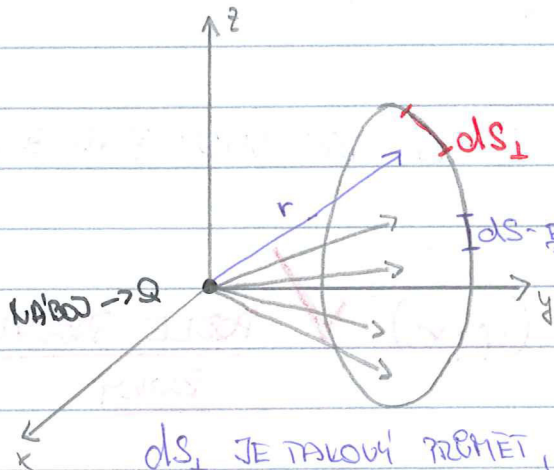 z
dS⊥
r
dS-
NÁBOJ → Q
y
x
dS⊥ JE TAKOVÝ PRŮMĚT,